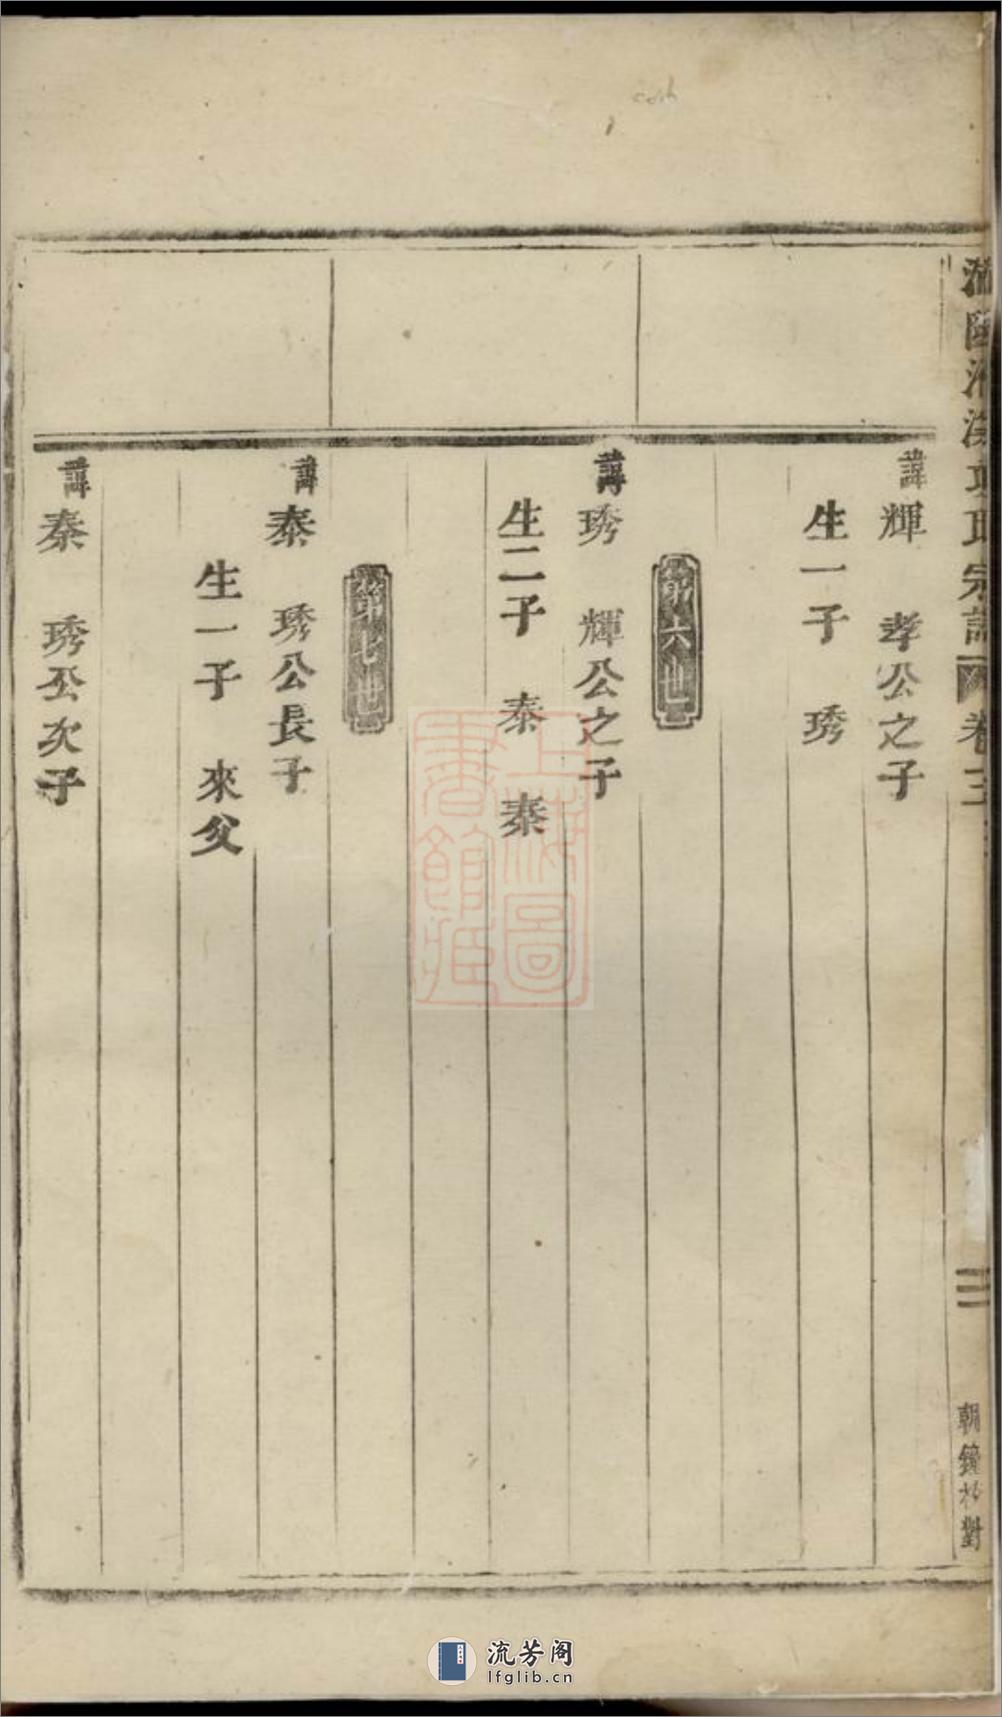 宗譜 卷三
三
朝鐘校對
諱輝 孝公之子
生一子 琇
第六世
諱琇 輝公之子
生二子 泰 秦
第七世
諱泰 琇公長子
生一子 來父
諱秦 琇公次子
上海圖書館藏
流芳阁
lfglib.cn